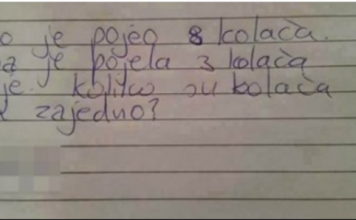 o je pojeo 8 kolača.
a je pojela 3 kolača
je. koliko su kolača
zajedno?